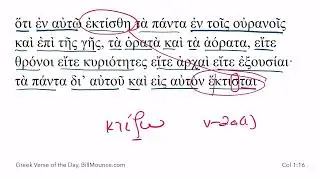 ὅτι ἐν αὐτῷ ἐκτίσθη τὰ πάντα ἐν τοῖς οὐρανοῖς
καὶ ἐπὶ τῆς γῆς, τὰ ὁρατὰ καὶ τὰ ἀόρατα, εἴτε
θρόνοι εἴτε κυριότητες εἴτε ἀρχαὶ εἴτε ἐξουσίαι·
τὰ πάντα δι’ αὐτοῦ καὶ εἰς αὐτὸν ἔκτισται
κτίζω v-2a(1)
Greek Verse of the Day, BillMounce.com Col 1:16